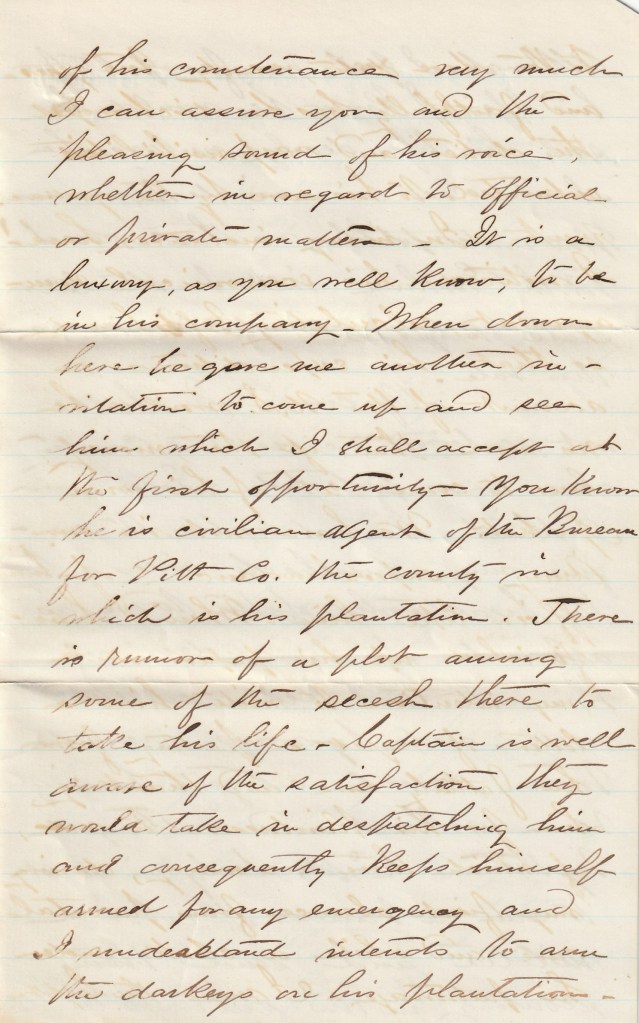 of his countenance very much
I can assure you and the
pleasing sound of his voice,
whether in regard to official
or private matters - It is a
luxury, as you well know, to be
in his company - When down
here he gave me another in-
vitation to come up and see
him which I shall accept at
the first opportunity - You know
he is civilian agent of the Bureau
for Pitt Co. the county in
which is his plantation. There
is rumor of a plot among
some of the secesh there to
take his life - Captain is well
aware of the satisfaction they
would take in despatching him
and consequently keeps himself
armed for any emergency and
I understand intends to arm
the darkeys on his plantation -